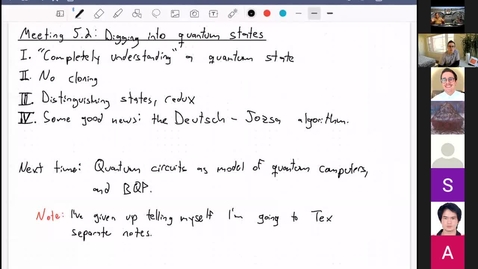 Meeting 5.2: Digging into quantum states
I. "Completely understanding" a quantum state
II. No cloning
III. Distinguishing states, redux
IV. Some good news: the Deutsch-Jozsa algorithm.
Next time: Quantum circuits as model of quantum computers,
and BQP.
Note: I've given up telling myself I'm going to Tex
separate notes.
S
A